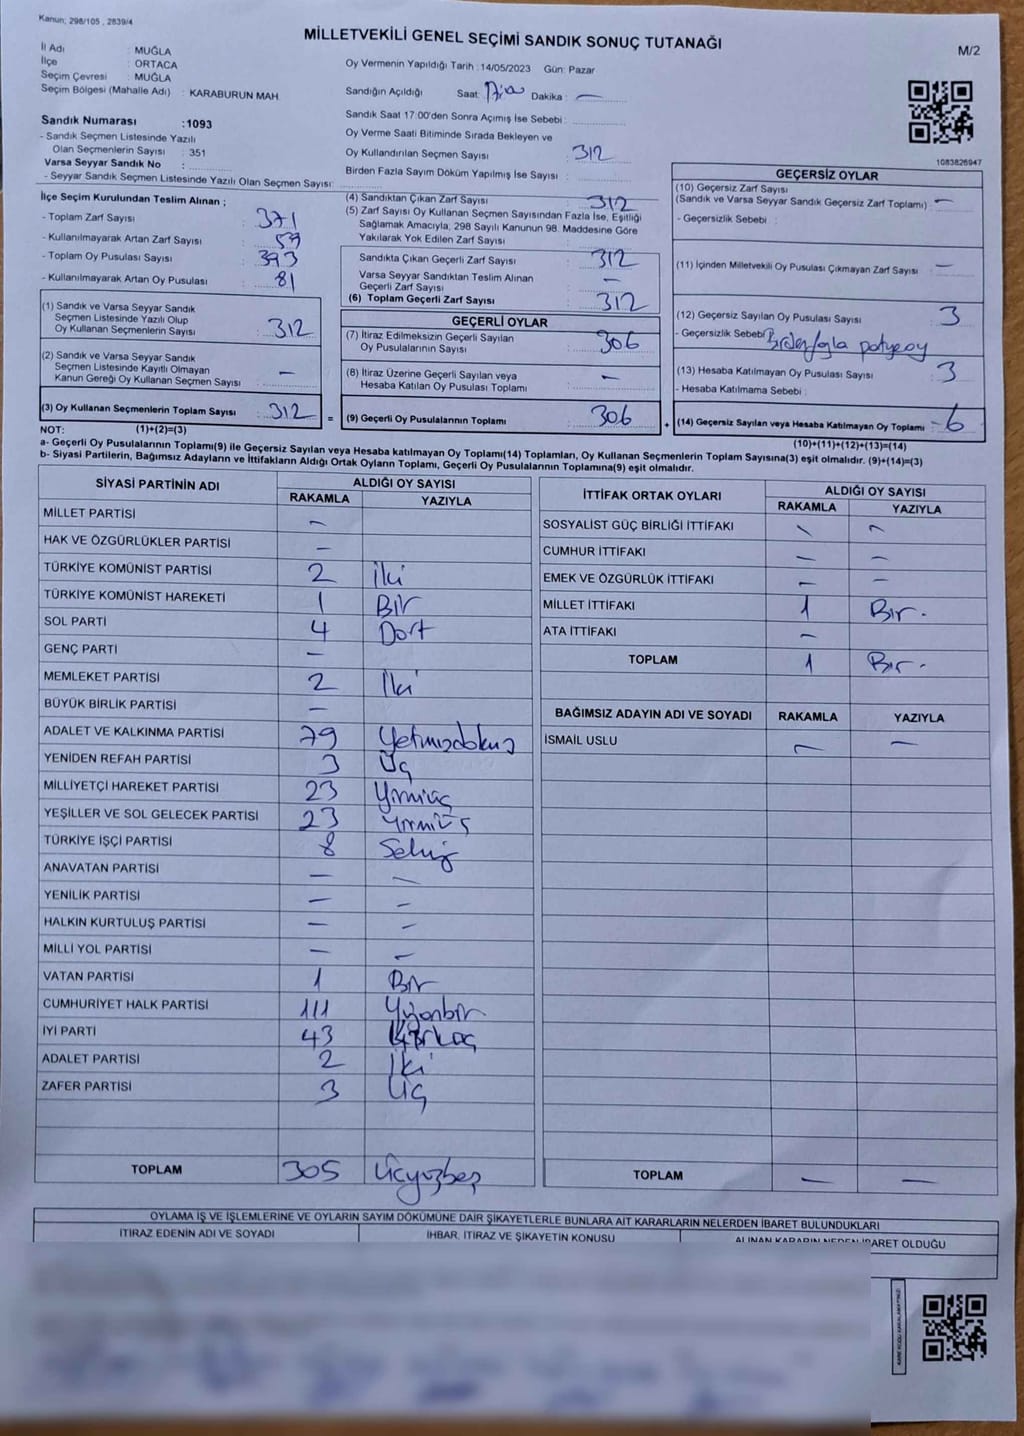 Kanun; 298/105 , 2839/4
MİLLETVEKİLİ GENEL SEÇİMİ SANDIK SONUÇ TUTANAĞI
M/2
İl Adı : MUĞLA
İlçe : ORTACA
Seçim Çevresi : MUĞLA
Seçim Bölgesi (Mahalle Adı) : KARABURUN MAH
Sandık Numarası :1093
- Sandık Seçmen Listesinde Yazılı
Olan Seçmenlerin Sayısı : 351
Varsa Seyyar Sandık No :
- Seyyar Sandık Seçmen Listesinde Yazılı Olan Seçmen Sayısı:
Oy Vermenin Yapıldığı Tarih :14/05/2023 Gün: Pazar
Sandığın Açıldığı Saat: Dakika : —
Sandık Saat 17:00'den Sonra Açımış İse Sebebi :
Oy Verme Saati Bitiminde Sırada Bekleyen ve
Oy Kullandırılan Seçmen Sayısı : 312
Birden Fazla Sayım Döküm Yapılmış İse Sayısı :
1083826947
İlçe Seçim Kurulundan Teslim Alınan ;
- Toplam Zarf Sayısı : 371
- Kullanılmayarak Artan Zarf Sayısı : 59
- Toplam Oy Pusulası Sayısı : 393
- Kullanılmayarak Artan Oy Pusulası : 81
(1) Sandık ve Varsa Seyyar Sandık
Seçmen Listesinde Yazılı Olup
Oy Kullanan Seçmenlerin Sayısı : 312
(2) Sandık ve Varsa Seyyar Sandık
Seçmen Listesinde Kayıtlı Olmayan
Kanun Gereği Oy Kullanan Seçmen Sayısı : —
(3) Oy Kullanan Seçmenlerin Toplam Sayısı : 312 =
(4) Sandıktan Çıkan Zarf Sayısı : 312
(5) Zarf Sayısı Oy Kullanan Seçmen Sayısından Fazla İse, Eşitliği
Sağlamak Amacıyla, 298 Sayılı Kanunun 98. Maddesine Göre
Yakılarak Yok Edilen Zarf Sayısı :
Sandıkta Çıkan Geçerli Zarf Sayısı : 312
Varsa Seyyar Sandıktan Teslim Alınan
Geçerli Zarf Sayısı : —
(6) Toplam Geçerli Zarf Sayısı : 312
GEÇERLİ OYLAR
(7) İtiraz Edilmeksizin Geçerli Sayılan
Oy Pusulalarının Sayısı : 306
(8) İtiraz Üzerine Geçerli Sayılan veya
Hesaba Katılan Oy Pusulası Toplamı : —
(9) Geçerli Oy Pusulalarının Toplamı : 306 +
GEÇERSİZ OYLAR
(10) Geçersiz Zarf Sayısı
(Sandık ve Varsa Seyyar Sandık Geçersiz Zarf Toplamı) : —
- Geçersizlik Sebebi :
(11) İçinden Milletvekili Oy Pusulası Çıkmayan Zarf Sayısı : —
(12) Geçersiz Sayılan Oy Pusulası Sayısı : 3
- Geçersizlik Sebebi : Birden fazla
(13) Hesaba Katılmayan Oy Pusulası Sayısı : 3
- Hesaba Katılmama Sebebi :
(14) Geçersiz Sayılan veya Hesaba Katılmayan Oy Toplamı : 6
NOT: (1)+(2)=(3)
(10)+(11)+(12)+(13)=(14)
a- Geçerli Oy Pusulalarının Toplamı(9) ile Geçersiz Sayılan veya Hesaba katılmayan Oy Toplamı(14) Toplamları, Oy Kullanan Seçmenlerin Toplam Sayısına(3) eşit olmalıdır. (9)+(14)=(3)
b- Siyasi Partilerin, Bağımsız Adayların ve İttifakların Aldığı Ortak Oyların Toplamı, Geçerli Oy Pusulalarının Toplamına(9) eşit olmalıdır.
SİYASİ PARTİNİN ADI ALDIĞI OY SAYISI
RAKAMLA YAZIYLA
MİLLET PARTİSİ —
HAK VE ÖZGÜRLÜKLER PARTİSİ —
TÜRKİYE KOMÜNİST PARTİSİ 2 İki
TÜRKİYE KOMÜNİST HAREKETİ 1 Bir
SOL PARTİ 4 Dört
GENÇ PARTİ —
MEMLEKET PARTİSİ 2 İki
BÜYÜK BİRLİK PARTİSİ —
ADALET VE KALKINMA PARTİSİ 79 Yetmişdokuz
YENİDEN REFAH PARTİSİ 3 Üç
MİLLİYETÇİ HAREKET PARTİSİ 23 Yirmiüç
YEŞİLLER VE SOL GELECEK PARTİSİ 23 Yirmiüç
TÜRKİYE İŞÇİ PARTİSİ 8 Sekiz
ANAVATAN PARTİSİ — —
YENİLİK PARTİSİ — —
HALKIN KURTULUŞ PARTİSİ — —
MİLLİ YOL PARTİSİ — —
VATAN PARTİSİ 1 Bir
CUMHURİYET HALK PARTİSİ 111 Yüzonbir
İYİ PARTİ 43 Kırküç
ADALET PARTİSİ 2 İki
ZAFER PARTİSİ 3 Üç
TOPLAM 305 Üçyüzbeş
İTTİFAK ORTAK OYLARI ALDIĞI OY SAYISI
RAKAMLA YAZIYLA
SOSYALİST GÜÇ BİRLİĞİ İTTİFAKI — —
CUMHUR İTTİFAKI — —
EMEK VE ÖZGÜRLÜK İTTİFAKI — —
MİLLET İTTİFAKI 1 Bir.
ATA İTTİFAKI —
TOPLAM 1 Bir.
BAĞIMSIZ ADAYIN ADI VE SOYADI RAKAMLA YAZIYLA
İSMAİL USLU — —
TOPLAM — —
OYLAMA İŞ VE İŞLEMLERİNE VE OYLARIN SAYIM DÖKÜMÜNE DAİR ŞİKAYETLERLE BUNLARA AİT KARARLARIN NELERDEN İBARET BULUNDUKLARI
İTİRAZ EDENİN ADI VE SOYADI IHBAR, İTİRAZ VE ŞİKAYETİN KONUSU ALINAN KARARIN NEDEN İBARET OLDUĞU